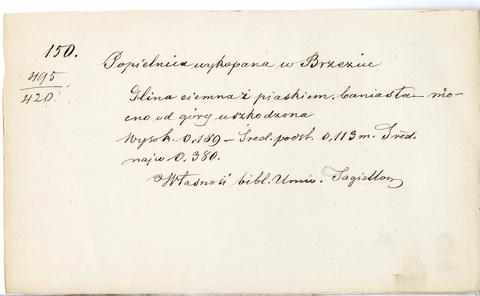 150.
495
420
Popielnica wykopana w Brzeziu
Glina ciemna z piaskiem, baniasta mo-
cno od góry uszkodzona
Wysok. 0,189 – Śred. podst. 0,113 m. Śred.
najw 0,380.
Własność bibl. Uniw. Jagiellon